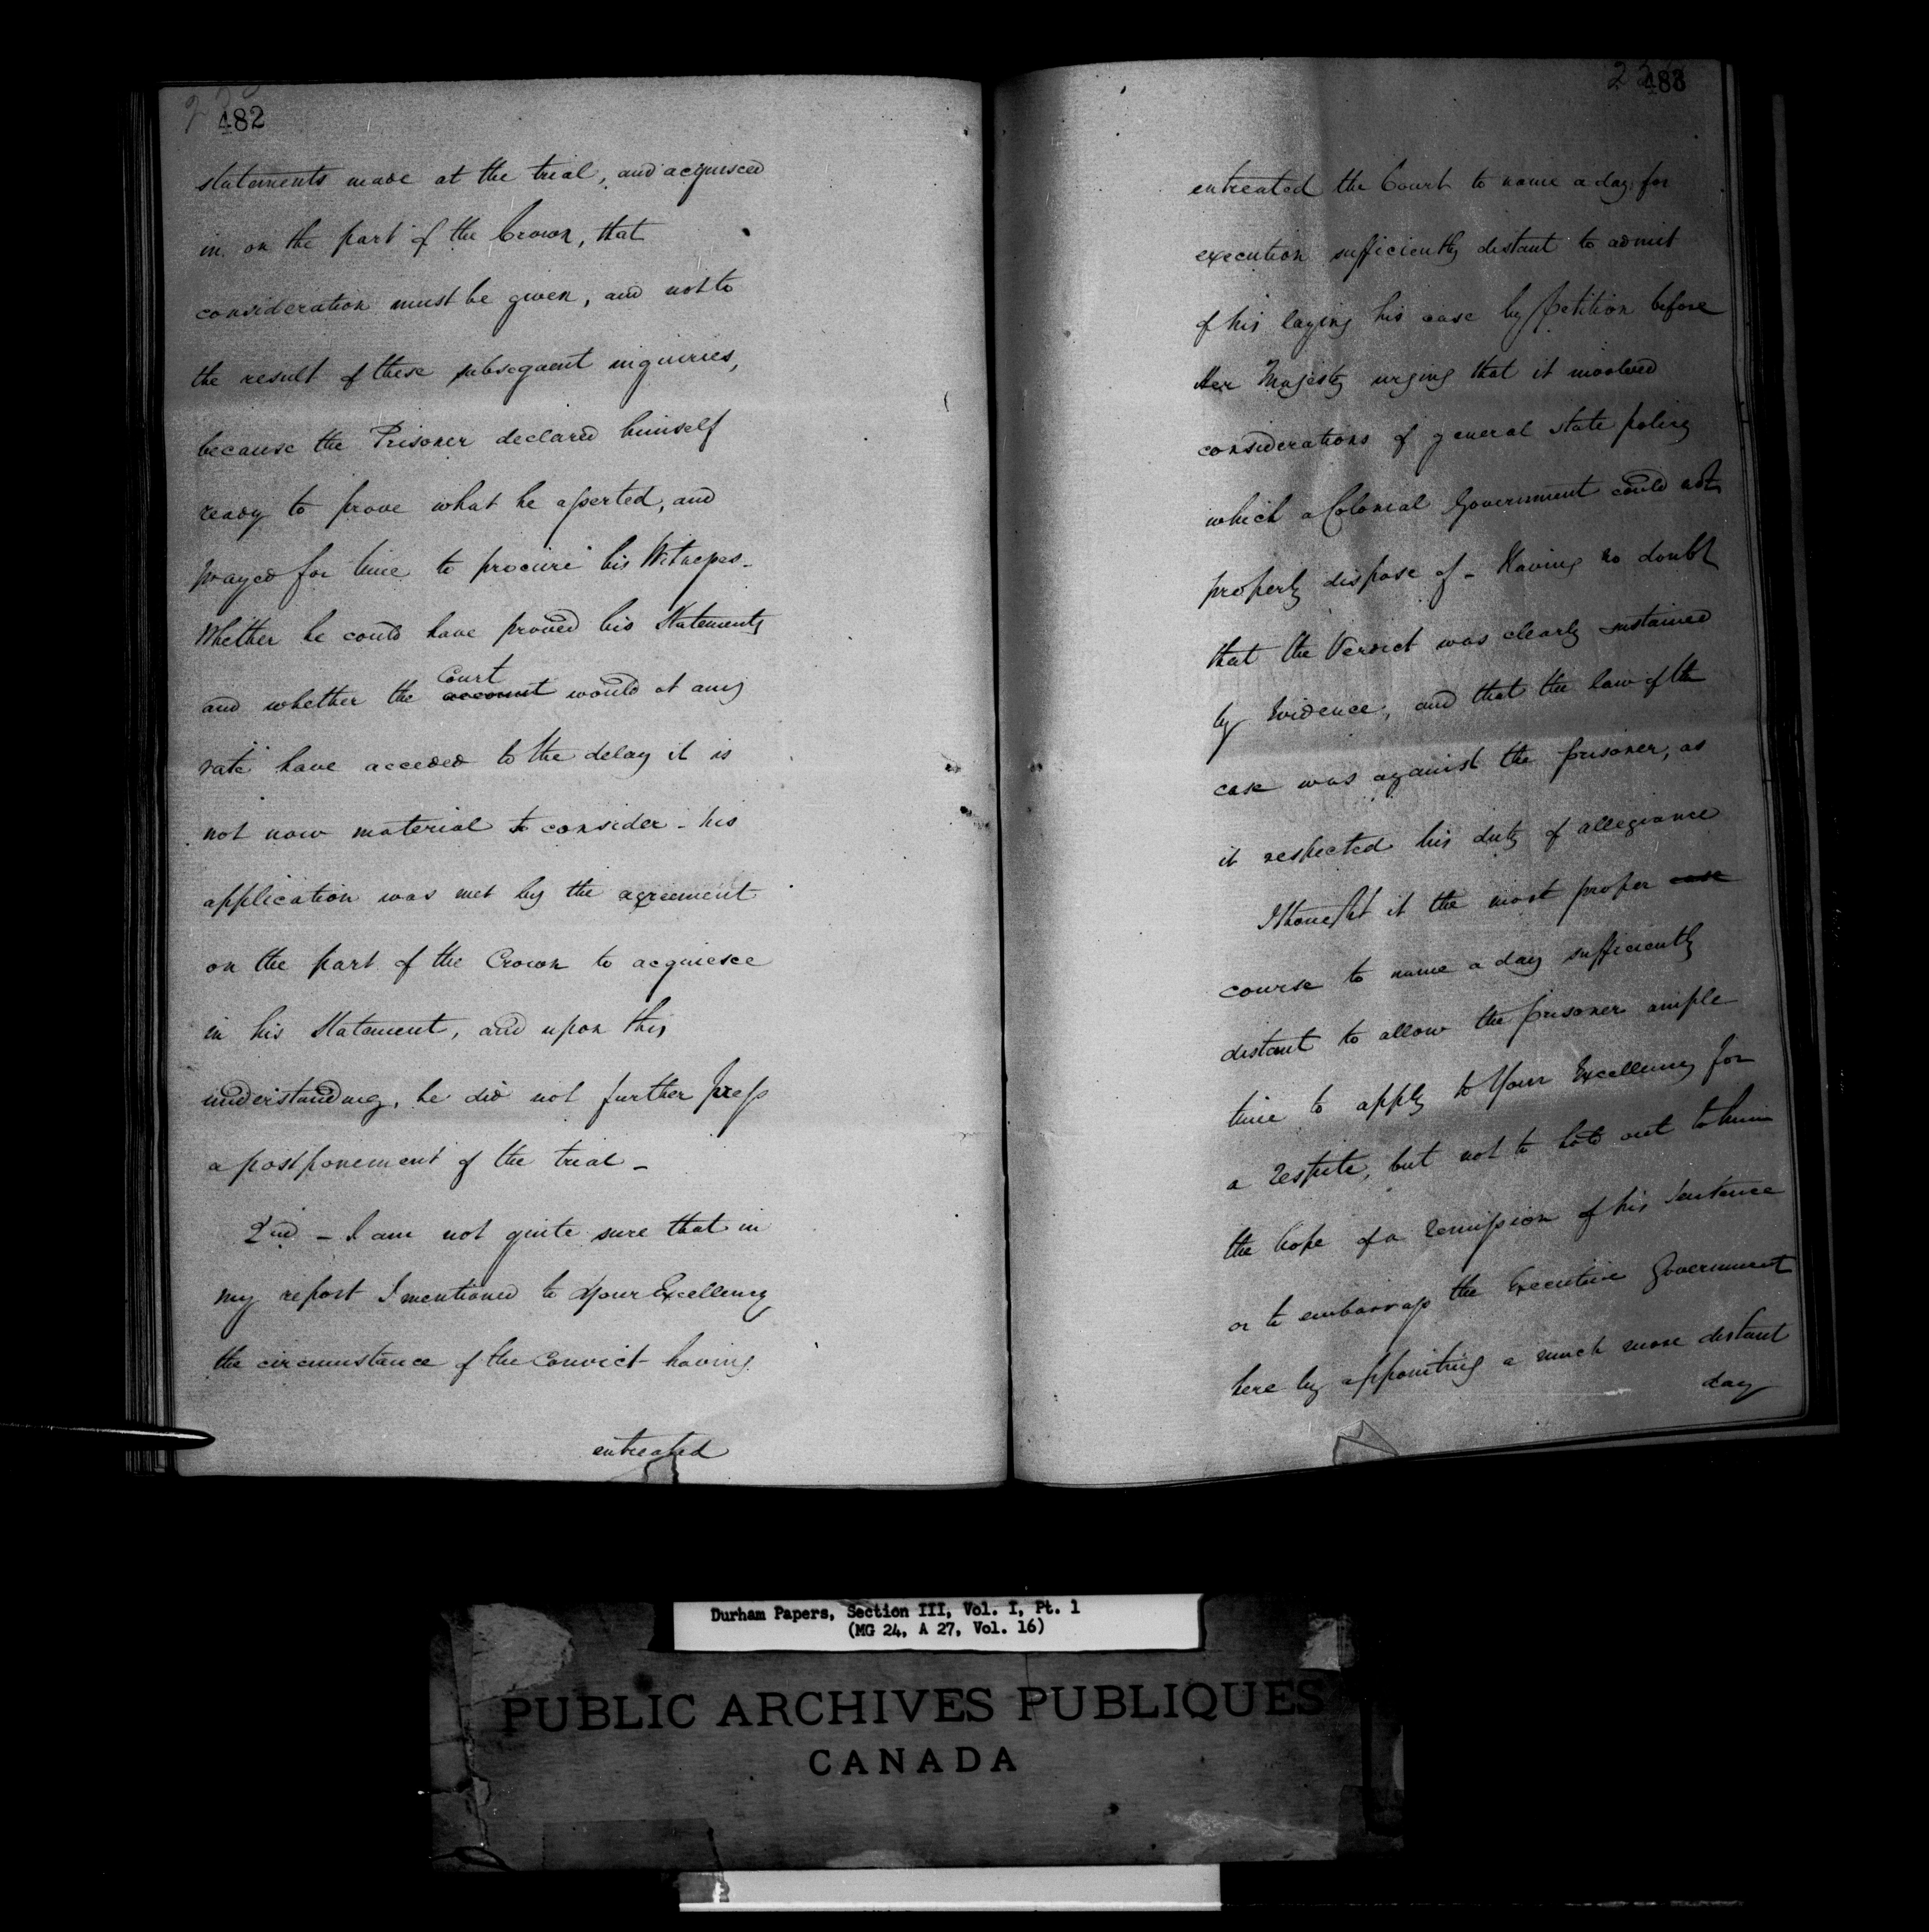 482
statements made at the trial, and acquisced
in on the part of the Crown, that
consideration must be given, and not to
the result of these subsequent inquiries,
because the Prisoner declared himself
ready to prove what he asserted, and
prayed for time to procure his Witnesses -
Whether he could have proved his Statements
Court
and whether the account would at any
rate have acceded to the delay it is
not now material to consider - his
application was met by the agreement
on the part of the Crown to acquiesce
in his Statement, and upon this
understanding, he did not further press
a postponement of the trial -
2nd - I am not quite sure that in
my report I mentioned to Your Excellency
the circumstance of the Convict having
entreated
483
entreated the Court to name a day for
execution sufficiently distant to admit
of his laying his case by Petition before
Her Majesty urging that it involved
considerations of general state policy
which a Colonial Government could not
properly dispose of - Having no doubt
that the Verdict was clearly sustained
by Evidence, and that the law of the
case was against the prisoner, as
it respected his duty of allegiance
I thought it the most proper case
course to name a day sufficiently
distant to allow the prisoner ample
time to apply to Your Excellency for
a respite, but not to hold out to him
the hope of a remission of his Sentence
or to embarrass the Executive Government
here by appointing a much more distant
day
Durham Papers, Section III, Vol. I, Pt. 1
(MG 24, A 27, Vol. 16)
PUBLIC ARCHIVES PUBLIQUES
CANADA